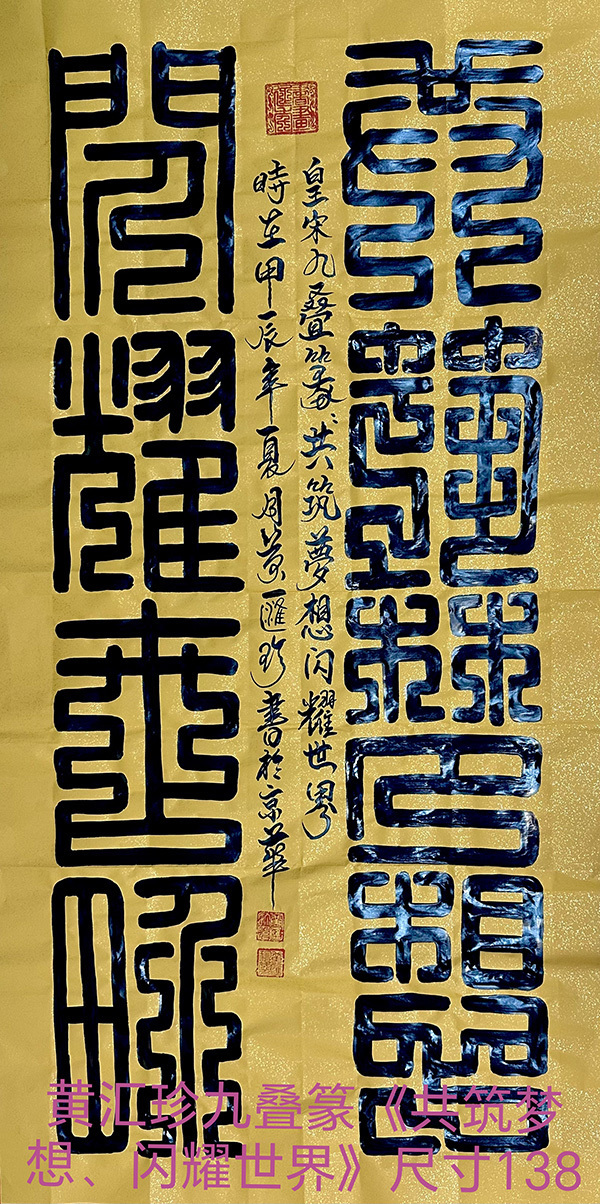 共築夢想
皇宋九叠篆:共筑夢想闪耀世界
時在甲辰年夏月黄匯珍書於京華
閃耀世界
黄汇珍九叠篆《共筑梦
想、闪耀世界》尺寸138